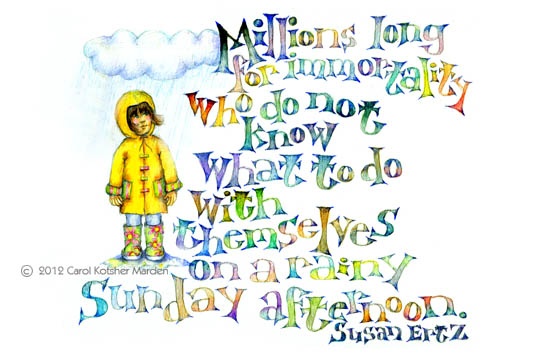 Millions long
for immortality
who do not
know
what to do
with
themselves
on a rainy
Sunday afternoon.
Susan Ertz
© 2012 Carol Kotsher Marden